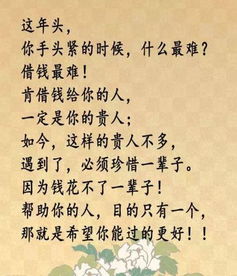 这年头，
你手头紧的时候，什么最难？
借钱最难！
肯借钱给你的人，
一定是你的贵人；
如今，这样的贵人不多，
遇到了，必须珍惜一辈子。
因为钱花不了一辈子！
帮助你的人，目的只有一个，
那就是希望你能过的更好！！